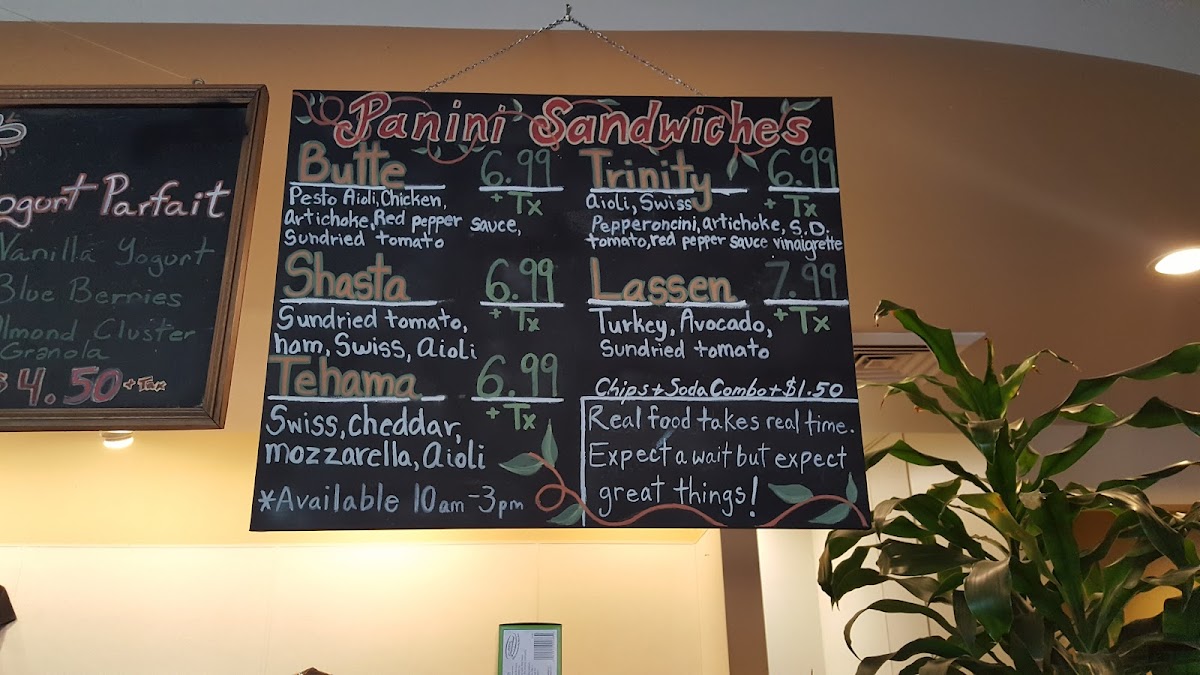 Yogurt Parfait
Vanilla Yogurt
Blue Berries
Almond Cluster
Granola
$4.50 + Tax
Panini Sandwiches
Butte 6.99
+ Tx
Pesto Aioli, Chicken,
artichoke, Red pepper sauce,
Sundried tomato
Shasta 6.99
+ Tx
Sundried tomato,
ham, Swiss, aioli
Tehama 6.99
+ Tx
Swiss, cheddar,
mozzarella, aioli
*Available 10am-3pm
Trinity 6.99
+ Tx
aioli, Swiss
Pepperoncini, artichoke, S.D.
tomato, red pepper sauce vinaigrette
Lassen 7.99
+ Tx
Turkey, Avocado,
Sundried tomato
Chips + Soda Combo + $1.50
Real food takes real time.
Expect a wait but expect
great things!